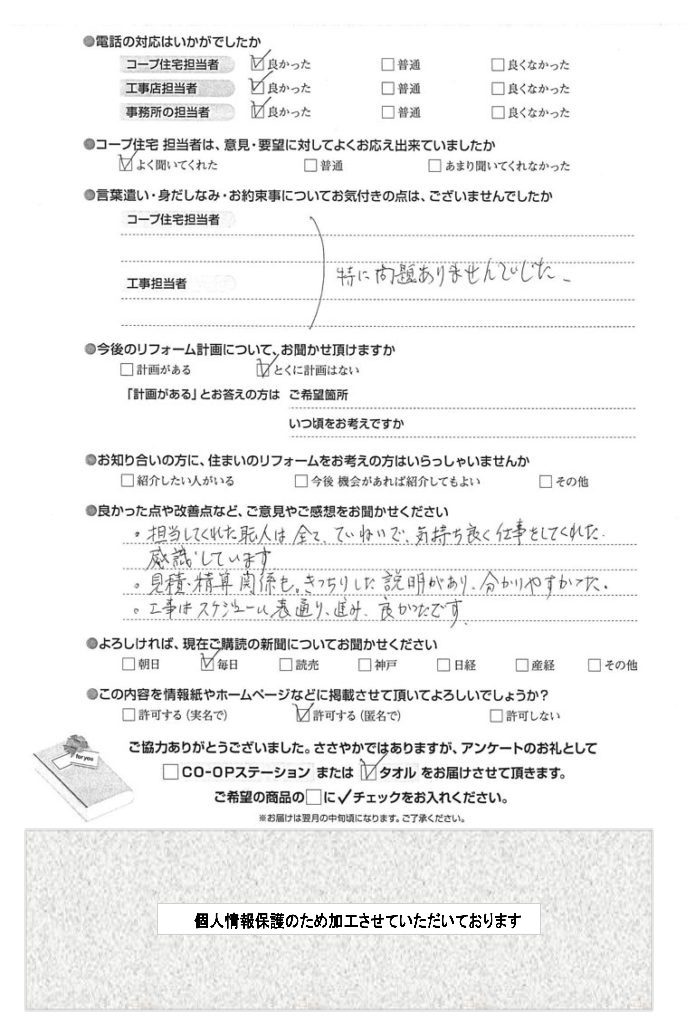 ●電話の対応はいかがでしたか
コープ住宅担当者 ☑良かった □普通 □良くなかった
工事店担当者 ☑良かった □普通 □良くなかった
事務所の担当者 ☑良かった □普通 □良くなかった
●コープ住宅 担当者は、意見・要望に対してよくお応え出来ていましたか
☑よく聞いてくれた □普通 □あまり聞いてくれなかった
●言葉遣い・身だしなみ・お約束事についてお気付きの点は、ございませんでしたか
コープ住宅担当者
特に問題ありませんでした。
工事担当者
●今後のリフォーム計画について、お聞かせ頂けますか
□計画がある ☑とくに計画はない
「計画がある」とお答えの方は ご希望箇所
いつ頃をお考えですか
●お知り合いの方に、住まいのリフォームをお考えの方はいらっしゃいませんか
□紹介したい人がいる □今後 機会があれば紹介してもよい □その他
●良かった点や改善点など、ご意見やご感想をお聞かせください
。担当してくれた職人は全て、ていねいで、気持ち良く仕事をしてくれた.
感謝しています
。見積・精算関係も。きっちりした説明があり、分かりやすかった。
。工事はスケジュール表通り、進み、良かったです.
●よろしければ、現在ご購読の新聞についてお聞かせください
□朝日 ☑毎日 □読売 □神戸 □日経 □産経 □その他
●この内容を情報紙やホームページなどに掲載させて頂いてよろしいでしょうか?
□許可する(実名で) ☑許可する(匿名で) □許可しない
for you
ご協力ありがとうございました。ささやかではありますが、アンケートのお礼として
□CO-OPステーション または ☑タオル をお届けさせて頂きます。
ご希望の商品の□に✓チェックをお入れください。
※お届けは翌月の中旬頃になります。ご了承ください。
個人情報保護のため加工させていただいております